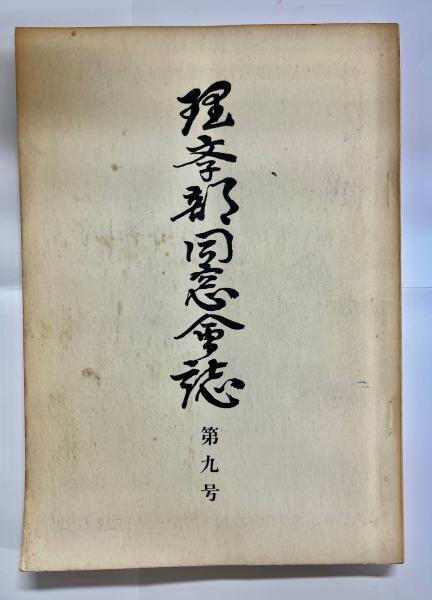 理学部同窓会誌
第九号